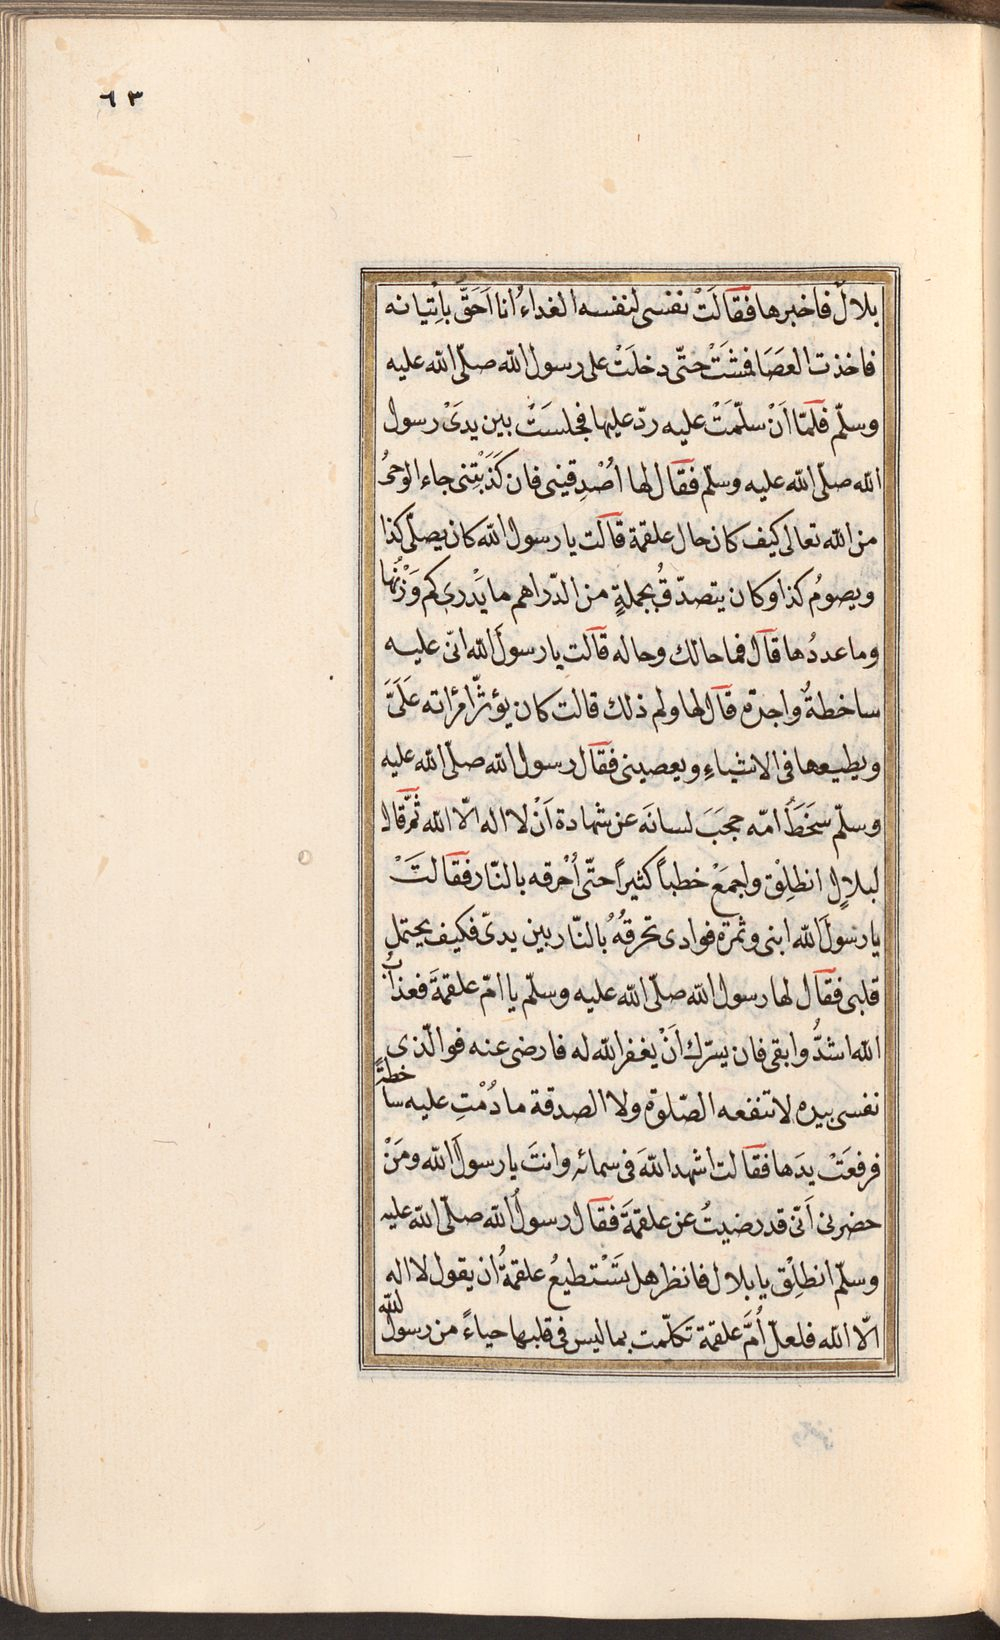 ٦٣
بلالٌ فاخبرها فقالَتْ نفسى لنفسه الغداءُ انا اَحَقُّ باِتيانه
فاخذت العصَا فمشَتْ حتّى دخلَتْ على رسول الله صلّى الله عليه
وسلّم فلمّا اَنْ سلّمَتْ عليه ردّ عليها فجلسَتْ بين يدَىْ رسول
الله صلّى الله عليه وسلّم فقال لها اُصْدِقينى فان كَذَبْتِنى جاء الوحىُ
من الله تعالى كيف كان حال علقمة قالت يا رسول الله كان يصلّى كذا
ويصومُ كذا وكان يتصدّقُ بجملةٍ من الدّراهم ما يَدْرى كم وَزْنُها
وما عددُها قال فما حالك وحاله قالت يا رسولَ الله انّى عليه
ساخطةٌ واجدة قال لها ولم ذلك قالت كان يؤثرّ امرُاته عَلَىَّ
ويطيعها فى الاشياءِ ويعصينى فقال رسول الله صلّى الله عليه
وسلّم سَخَطُ امّه حجَبَ لسانَه عن شهادة اَنْ لا اله الّا الله ثمَّ قال
لبلالٍ انطلِقْ واجمَعْ خطباً كثيراً حتّى اُحْرقه بالنّار فقالَتْ
يا رسولَ الله ابنى وثمرة فوادى تحرقُهُ بالنّار بين يدىّ فكيف يحتمل
قلبى فقال لها رسول الله صلّى الله عليه وسلّم يا امّ علقمةَ فعذابُ
الله اشدُّ وابقى فان يسرّك اَنْ يغفر الله له فارضى عنه فوالّذى
نفسى بيده لا تنفعه الصّلوة ولا الصدقة ما دُمْتِ عليه ساخطةً
فرفعَتْ يدَها فقالت اشهد اللهَ فى سمائه وانتَ يا رسولَ الله ومَنْ
حضرنى اَنّى قد رضيتُ عن علقمةَ فقال رسولُ الله صلّى الله عليه
وسلّم انطلِقْ يا بلال فانظر هل يَسْتطيعُ علقمةُ ان يقول لا اله
الّا الله فلعلّ اُمَّ علقمة تكلّمت بما ليس فى قلبها حياءً من رسول الله